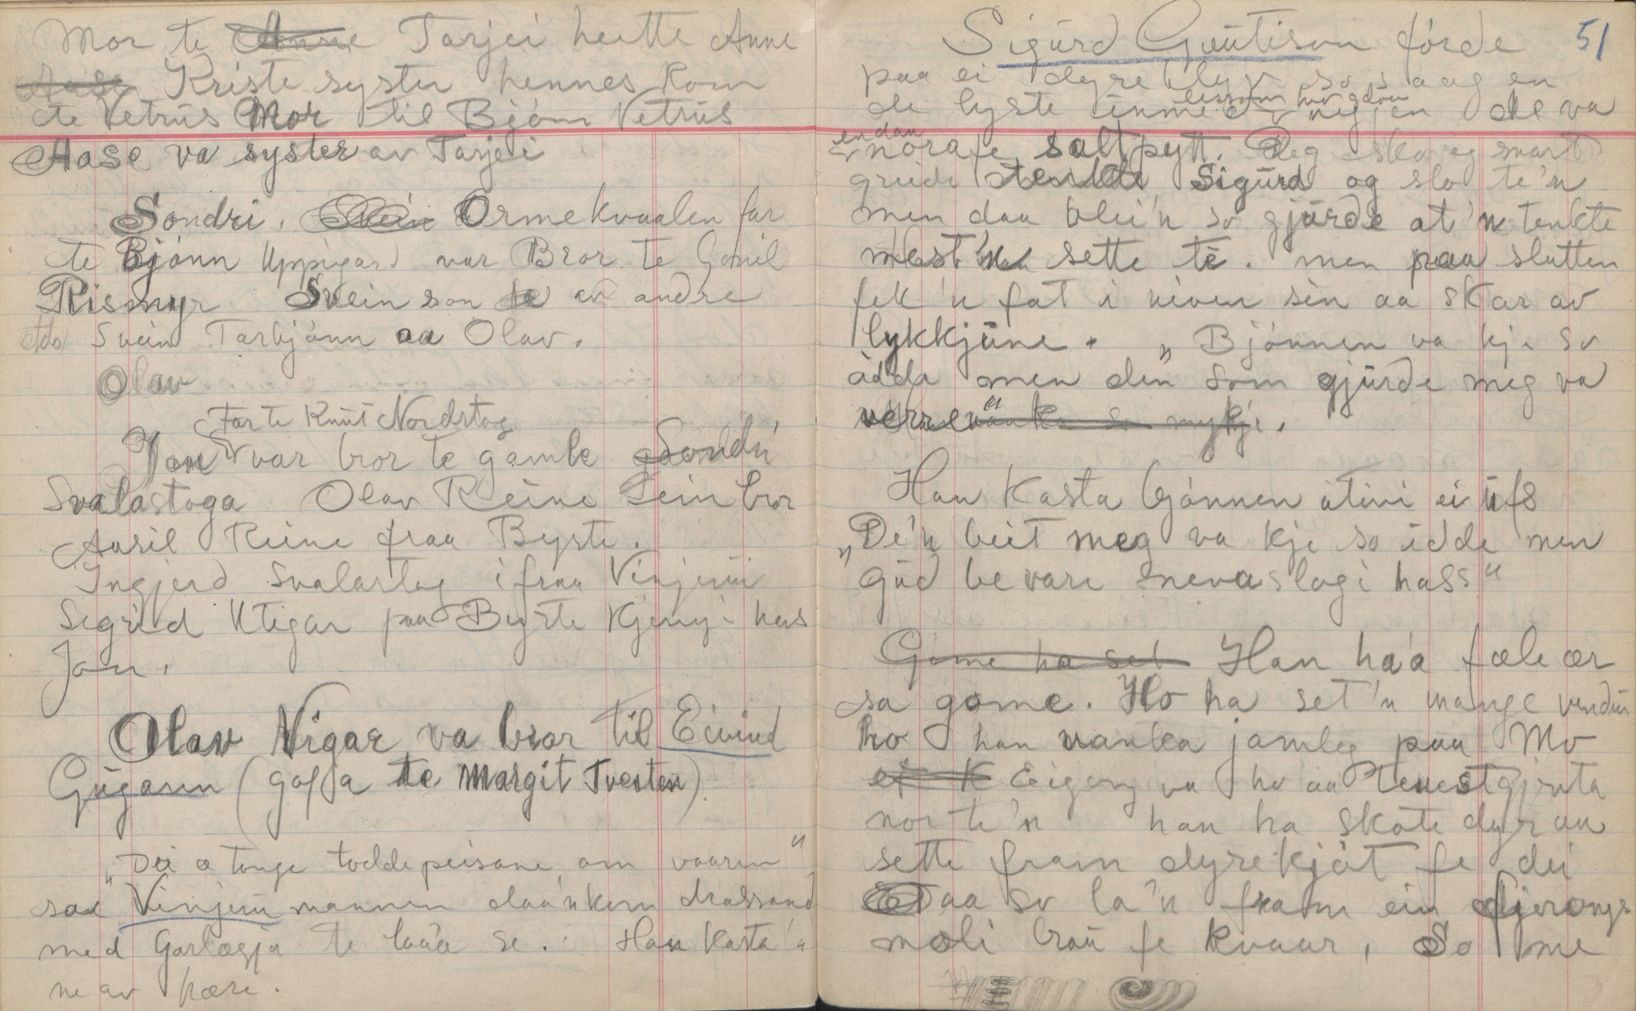 Mor te Anne Tarjei heitte Anne
Aase Kriste syster hennes kom
te Vetrüs Mor til Bjønn Vetrüs
Aase va syster av Tarjei
Sondri. Svein Ormekvaalen far
te Bjønn Uppigard var Bror te Gunil
Rismyr Svein son te en andre
Svein Tarbjønn aa Olav.
Olav
Far te Knüt Nordstog
Jon var bror te gamle Sondri
Svalastoga Olav Reine ein bror
Aasil Reine fraa Byrte.
Ingjerd Svalastog ifraa Vinjeüi
Sigrid Utigar paa Byrte Kjering hass
Jon.
Olav Nigar va bror til Eivind
Gügarn (goffa te Margit Tveiten).
„Dei æ tonge toddepeisane om vaaren"
sae Vinjeüi mannen daa'n kom drassand
med Garlægja te laa'a se. Han kasta 'n
ne av bære.
Sigürd Guütison förde 51
paa ei dyreklyv so saag en
de lyste
de va
endaa
norate saltpytt. Deg ska eg snart
greide tenkte Sigürd og slo te'n
men daa blei'n so gjürde at 'n tenkte
mest 'n sette te. men paa slutten
fek 'n fat i niven sin aa skar av
lykkjüne. „Bjønnen va kje so
ådde men den som gjürde meg va
verre" anka so mykji.
Han kasta bjønnen ùtivi ei üfs
„De'n beit meg va kje so idde men
Güd bevare nevaslagi hass"
Gome ha set Han ha'a fæle ær
sa gome. Ho ha set 'n mange vendür
ho han vanka jamleg paa Mo
Eigong va ho aa tenestgjenta
nor te'n han ha skote dyr aa
sette fram dyrekjöt fe dei
Daa so la 'n fram ein fjorongs
mæli brau fe kvaar, So me